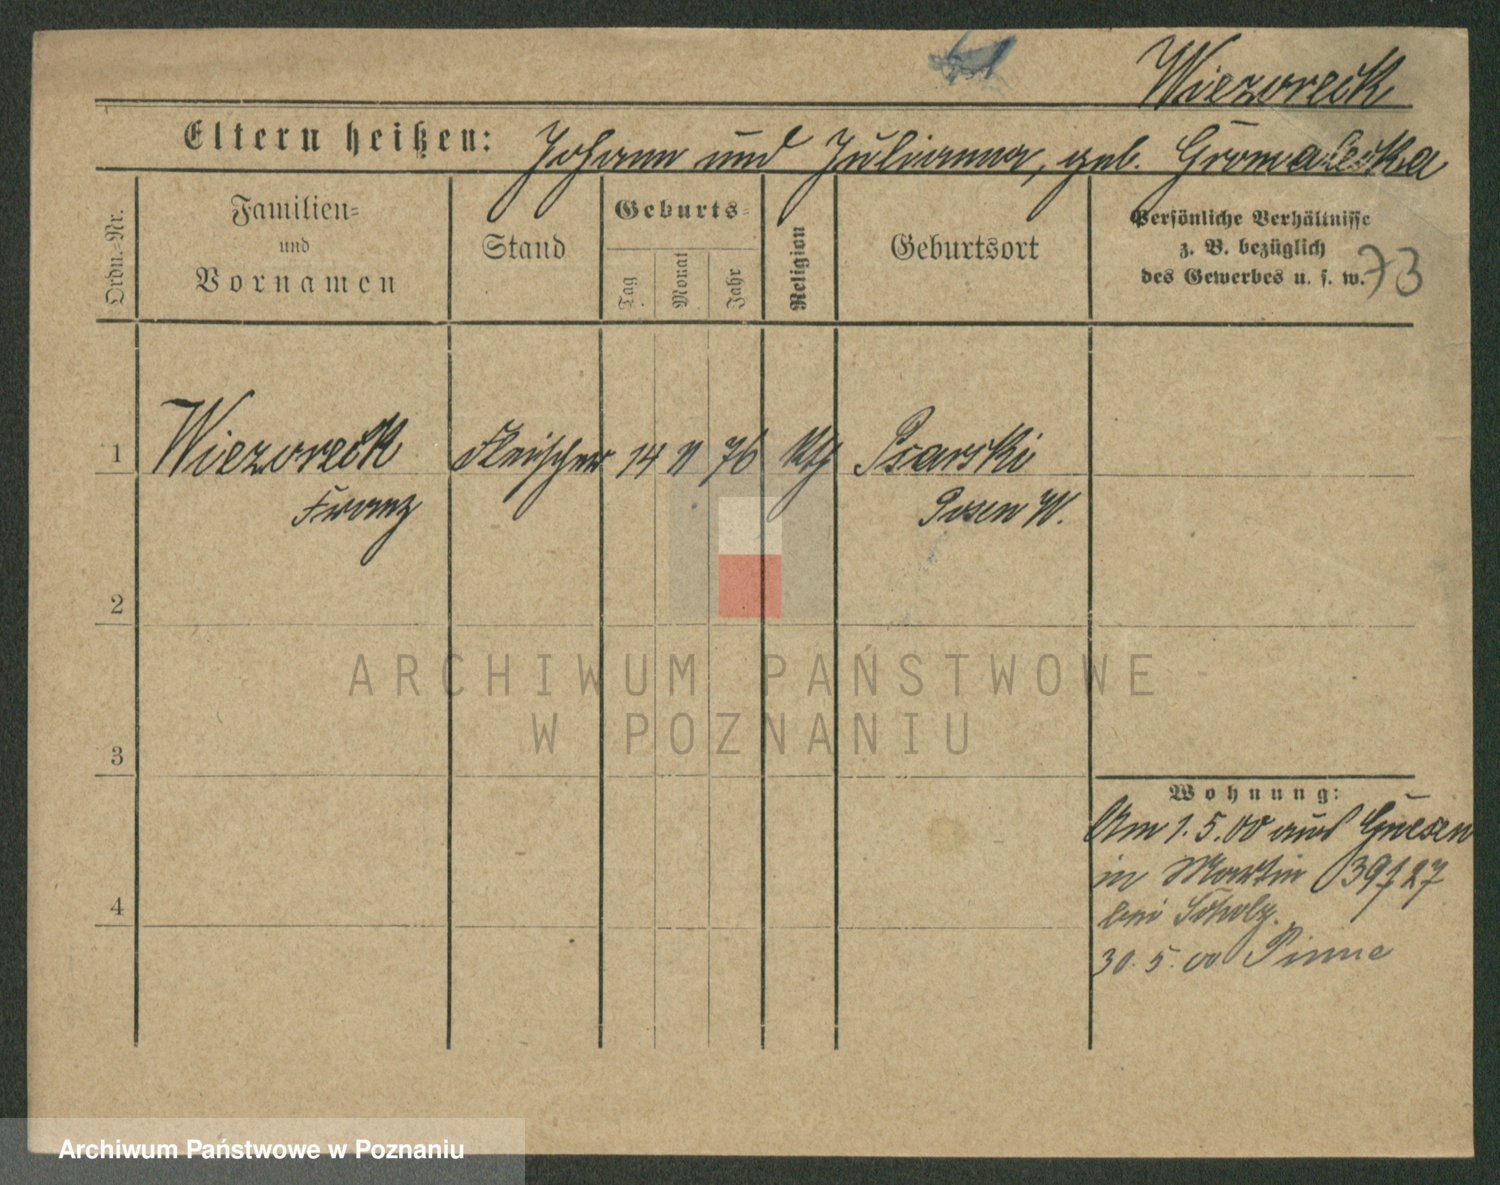 Wiezoreck
Eltern heißen: Johann und Julianna, geb. Gromadecka
Ordn.-Nr.
Familien-
und
Vornamen
Stand
Geburts-
Tag
Monat
Jahr
Religion
Geburtsort
Persönliche Verhältnisse
z. B. bezüglich
des Gewerbes u. s. w.
73
1 Wiezoreck Fleischer 14 76 kth Psarski
Franz Posen W.
2
3
4
Wohnung:
Am 1.5.00 aus Gnesen
in Martin 39
bei Scholz.
30.5.00 Pinne
ARCHIWUM PAŃSTWOWE
W POZNANIU
Archiwum Państwowe w Poznaniu